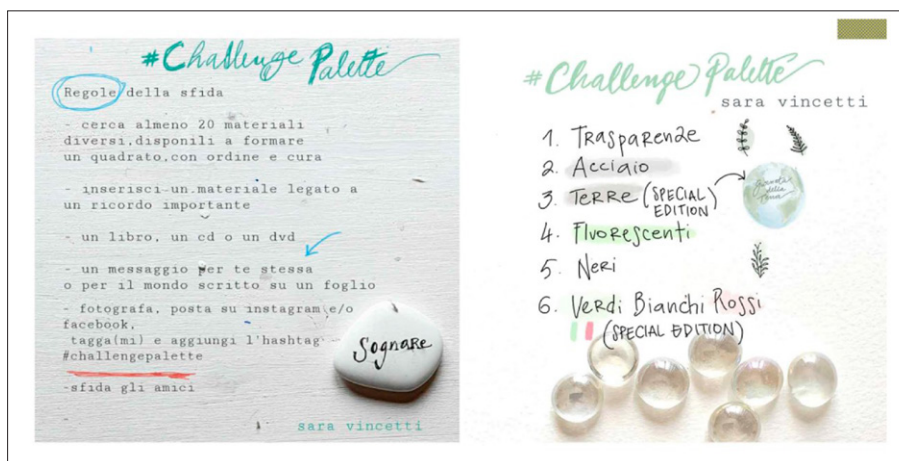 #Challenge Palette
Regole della sfida
- cerca almeno 20 materiali
diversi,disponili a formare
un quadrato,con ordine e cura
- inserisci un materiale legato a
un ricordo importante
- un libro, un cd o un dvd
- un messaggio per te stessa
o per il mondo scritto su un foglio
- fotografa, posta su instagram e/o
facebook,
tagga(mi) e aggiungi l'hashtag
#challengepalette
-sfida gli amici
Sognare
sara vincetti
#Challenge Palette
sara vincetti
1. Trasparenze
2. Acciaio
3. Terre (SPECIAL
EDITION)
4. Fluorescenti
5. Neri
6. Verdi Bianchi Rossi
(SPECIAL EDITION)